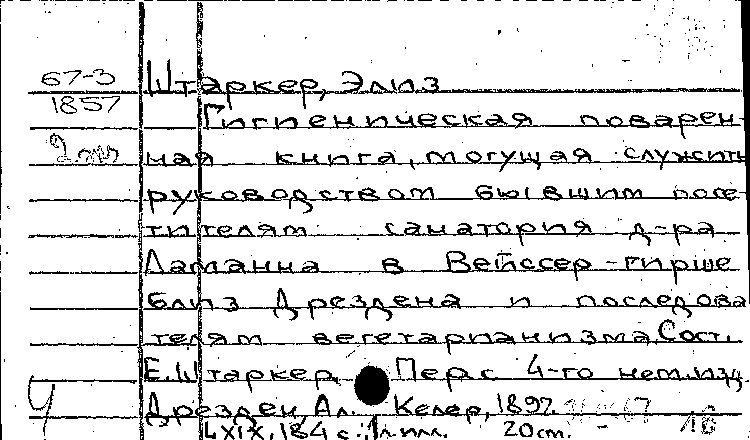 67-3
1857
Штаркер, Элиз
Гигиеническая поварен-
ная книга, могущая служить
руководством бывшим посе-
тителям санатория д-ра
Ламанна в Вейссер-гирше
близ Дрездена и последова
телям вегетарианизма. Сост.
Е. Штаркер. Пер. с 4-го нем. изд.
Дрезден, Ал. Келер, 1897.
LXIX, 184 с. 20 cm.